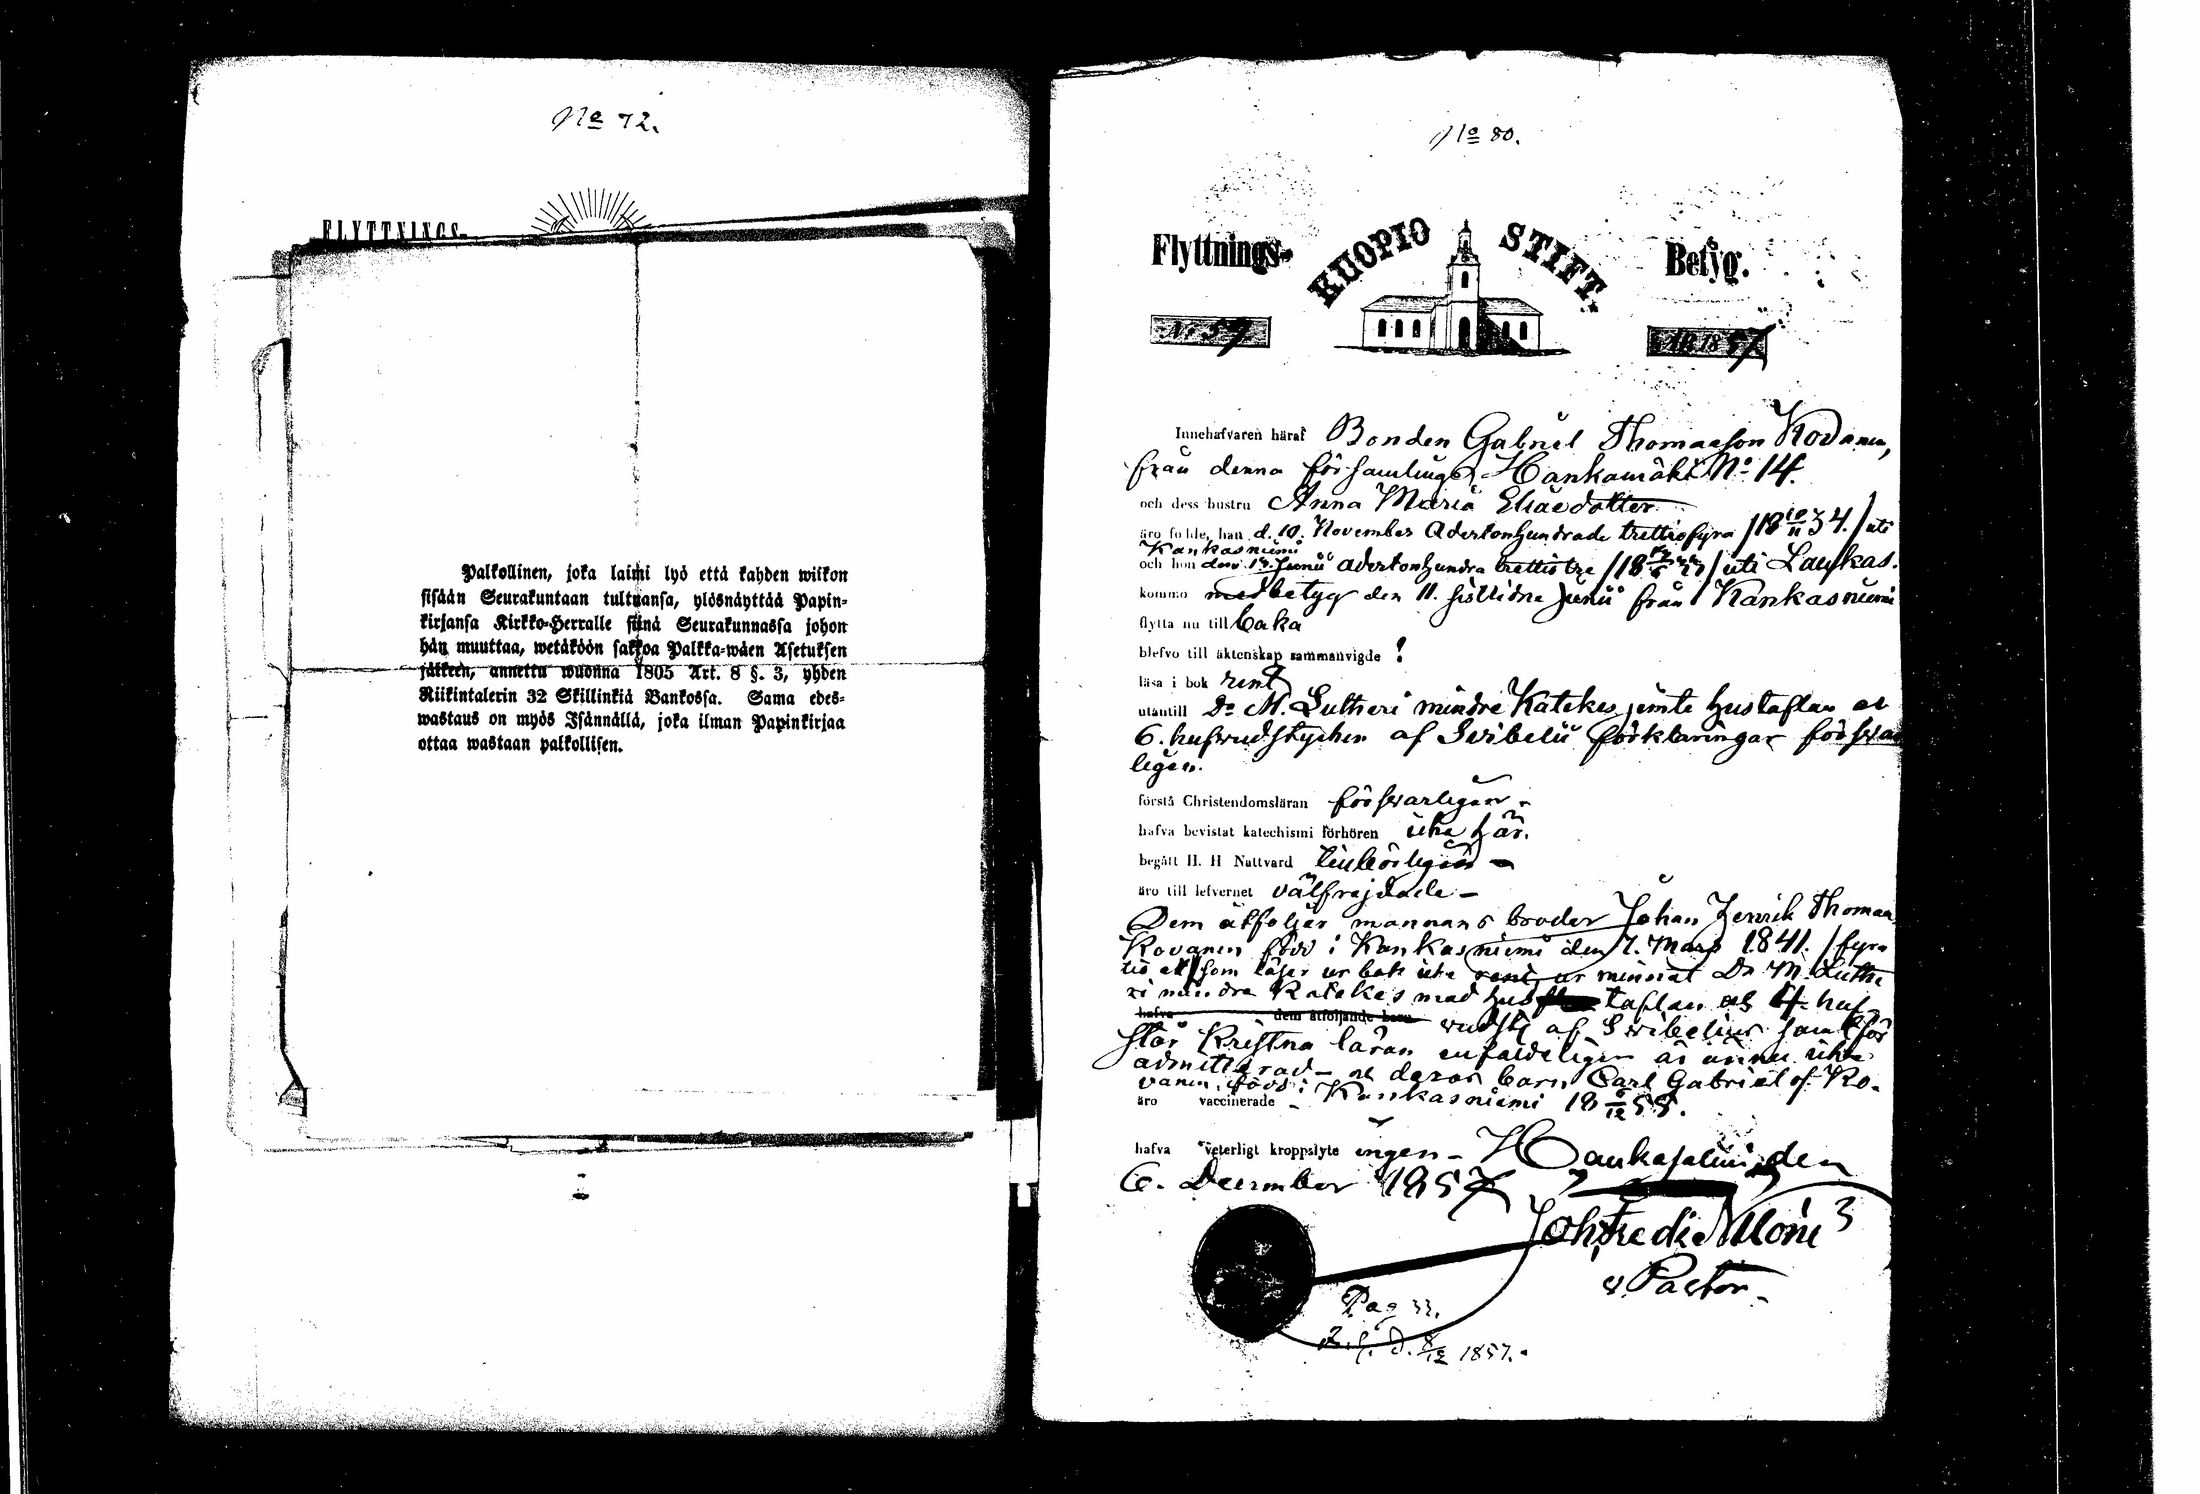 No 72.
FLYTTNINGS-
Palkollinen, joka laimi lyö että kahden wiikon
sisään Seurakuntaan tultuansa, ylösnäyttää Papin-
kirjansa Kirkko-Herralle siinä Seurakunnassa johon
hän muuttaa, wetäköön sakkoa Palkka-wäen Asetuksen
jälkeen, annettu wuonna 1805 Art. 8 §. 3, yhden
Riikintalerin 32 Skillinkiä Bankossa. Sama edes-
wastaus on myös Isännällä, joka ilman Papinkirjaa
ottaa wastaan palkollisen.
No 80.
Flyttnings- KUOPIO STIFT. Betyg.
No 57 År 1857
Innehafvaren häraf Bonden Gabriel Thomasson Kovanen,
från denna församling Hankamäki No 14.
och dess hustru Anna Maria Eliaedotter
äro födde, han d. 10. November Adertonhundrade trettiofyra /18 10/11 34./ uti
Kankasniemi
och hon den Junii adertonhundra trettiotre uti Laukas.
komme med betyg den 11. sistlidne Junii från Kankasniemi
flytta nu till
blefvo till äktenskap sammanvigde !
läsa i bok rent
utantill Dr M. Lutheri mindre Katekes jemte hustaflan och
6. hufvudstycken af Svebelii förklaringar försvar
ligen.
förstå Christendomsläran försvarligen -
hafva bevistat katechismi förhören icke här.
begått H. H Nattvard tillbörligen -
äro till lefvernet välfrejdade -
Dem åtföljer mannens broder Johan Henrik Thomas.
Kovanen född i Kankasniemi den 7. Mars 1841. /fyra
tio ett/ som läser ur bok icke rent, ur minnet Dr M. Luthe
ri mindre Katekes med hus taflan och 4 huf-
hafva dem åtföljande barn vudst. af Svebelius samt för
står Kristna läran enfaldeligen är ännu icke
admitterad - och deras barn Carl Gabriel f. Ko-
vanen, född i Kankasniemi 18 55.
äro vaccinerade -
hafva veterligt kroppslyte ingen - Hankasalmi, den
6. December 1857
v Pastor -
Pag 33.
1857.